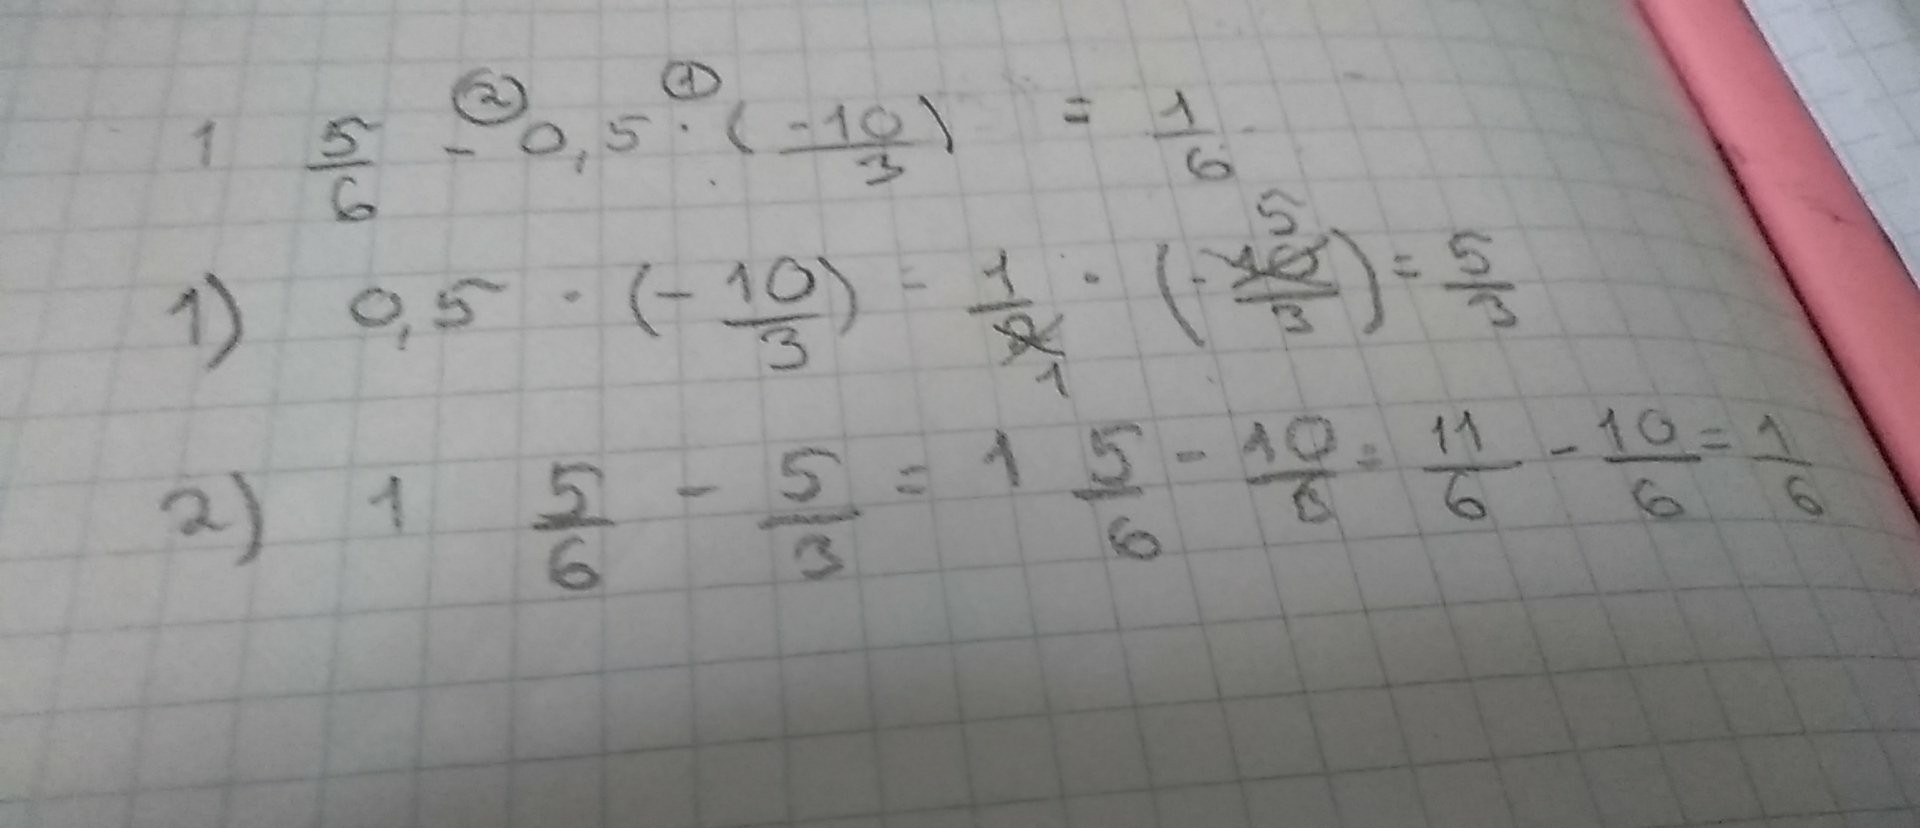 1 5/6 -② 0,5 ·① (-10/3) = 1/6
1) 0,5 · (- 10/3) = 1/2 1 · (- 10/3 5) = 5/3
2) 1 5/6 - 5/3 = 1 5/6 - 10/6 = 11/6 - 10/6 = 1/6